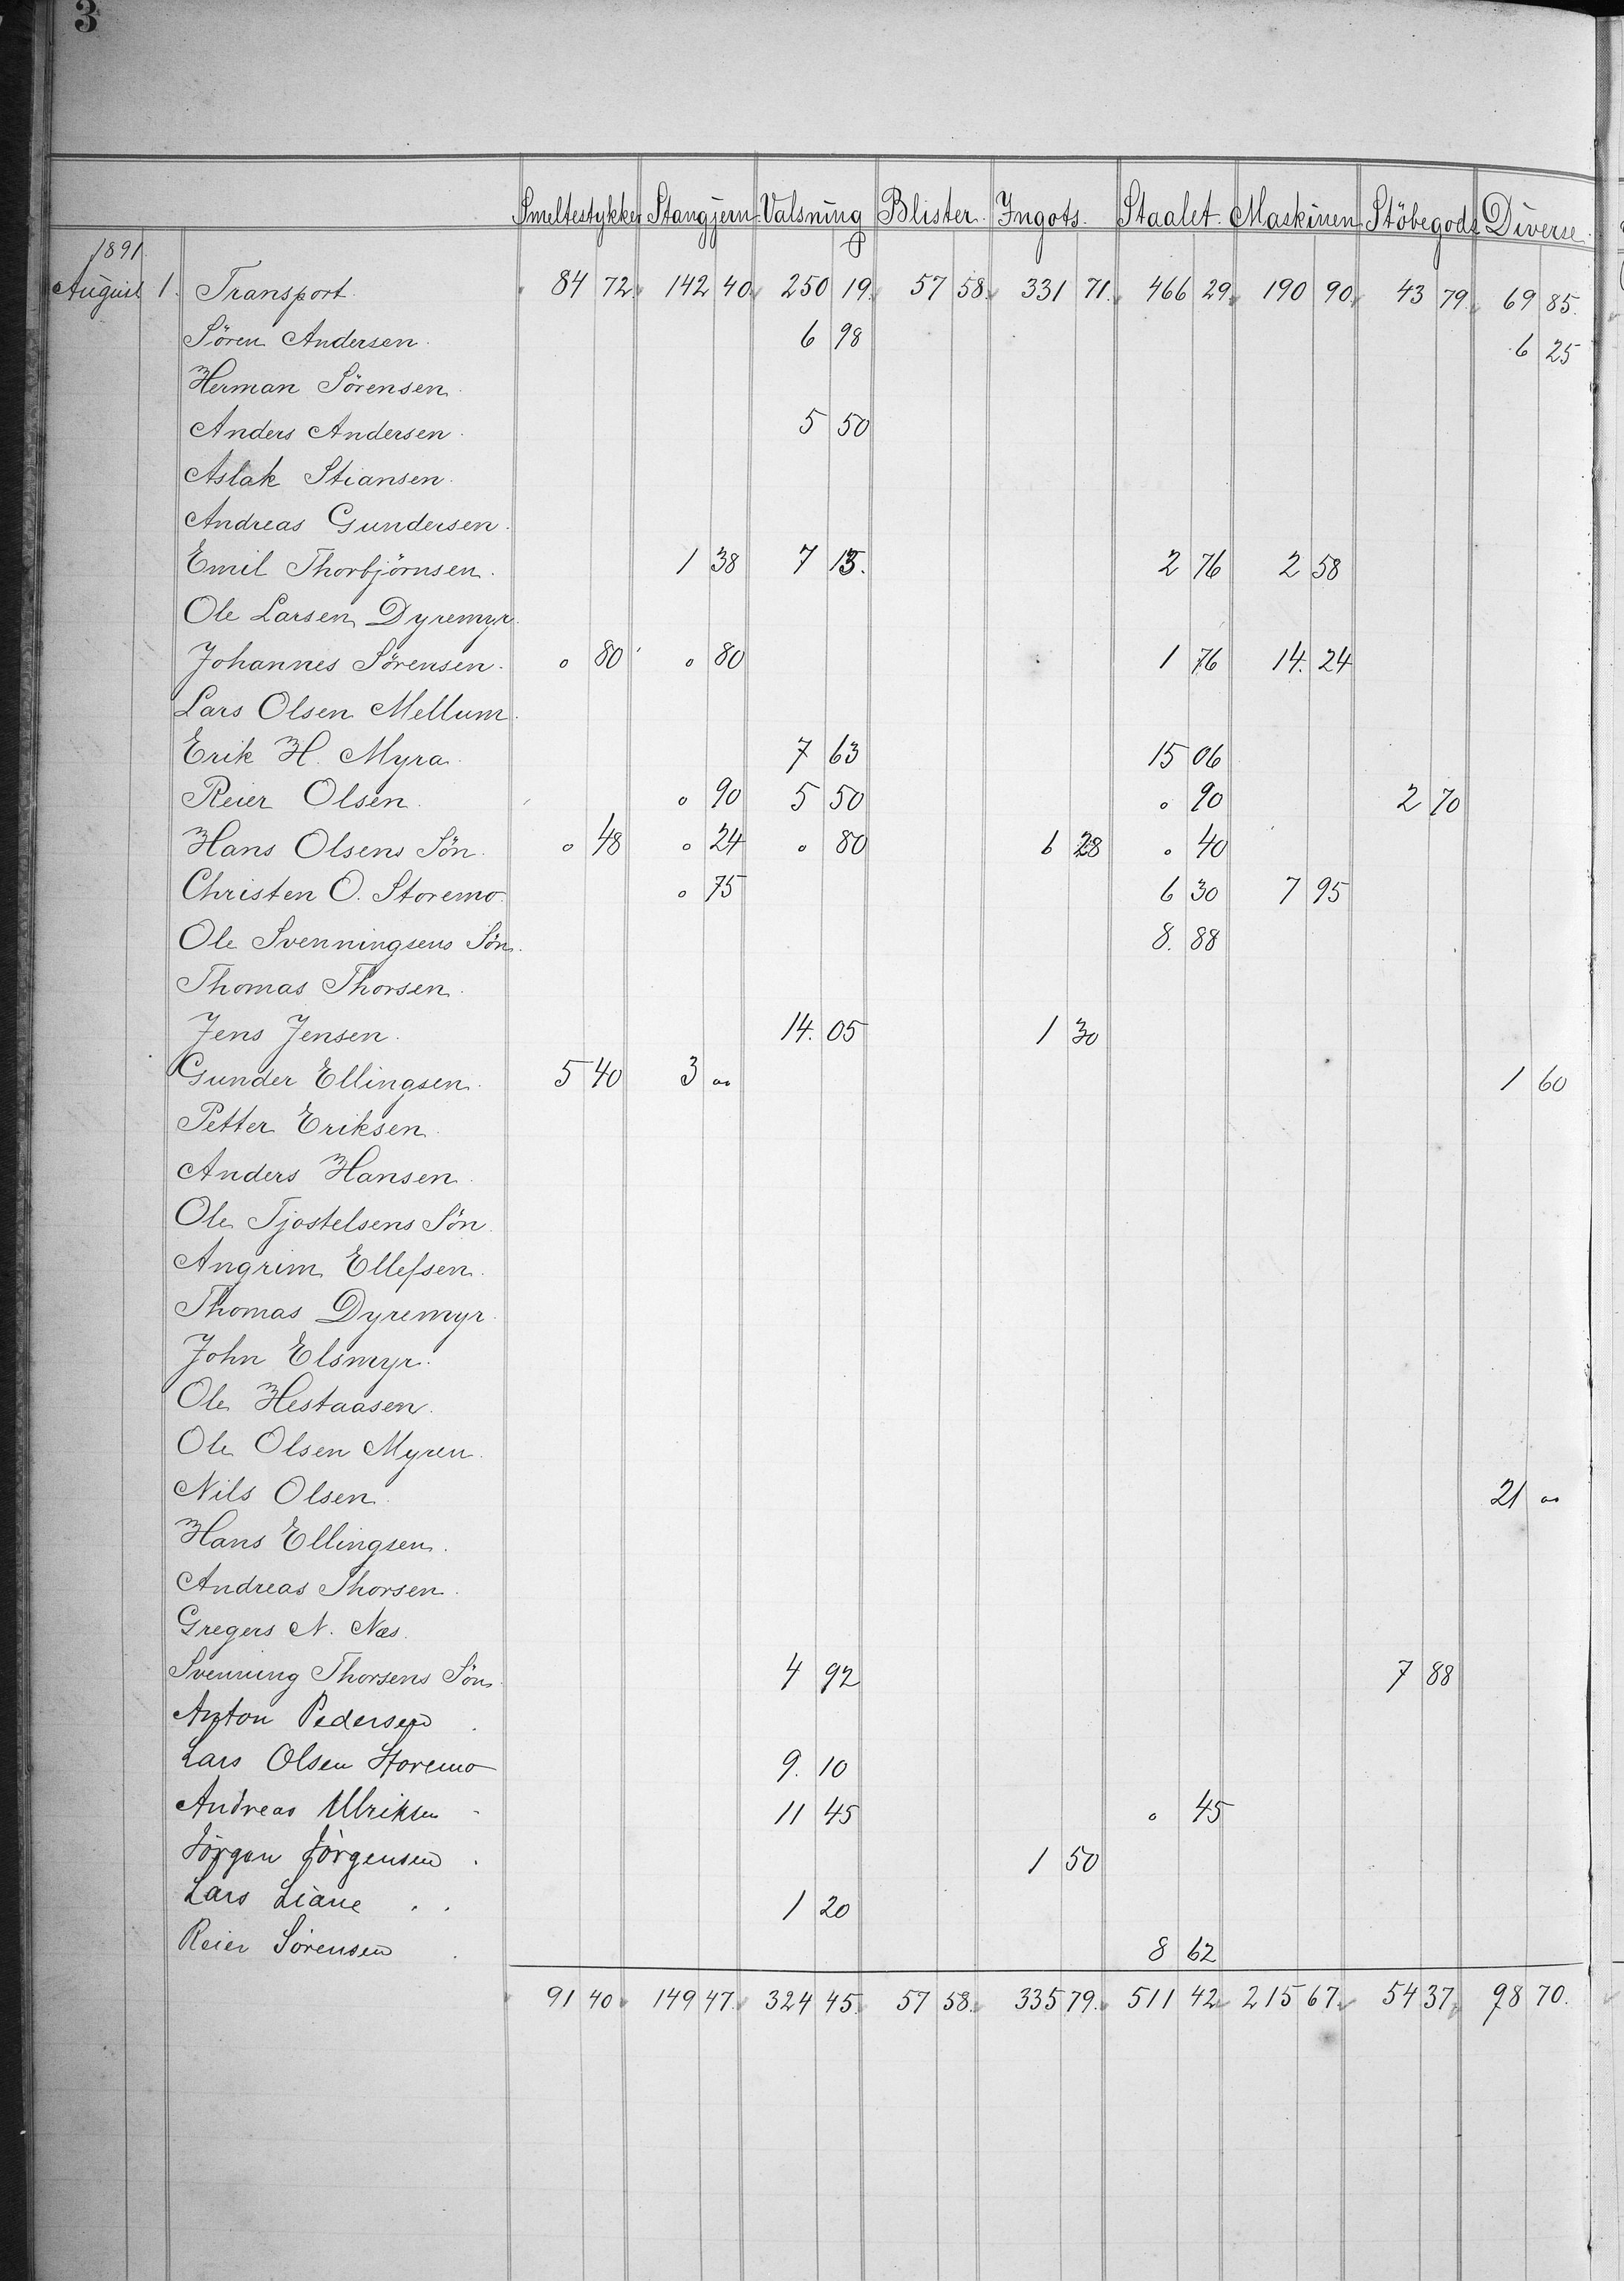 3
Smeltestykker Stangjern Valsning Blister. Ingots. Staalet. Maskinen Stöbegods Diverse.
1891.
August 1. Transport. 84 72. 142 40. 250 19. 57 58. 331 71. 466 29. 190 90. 43 79. 69 85.
Sören Andersen. 6 98 6 25
Herman Sörensen.
Anders Andersen. 5 50
Aslak Stiansen.
Andreas Gundersen.
Emil Thorbjörnsen. 1 38 7 13. 2 76 2 58
Ole Larsen Dyremyr.
Johannes Sörensen. 0 80 0 80 1 76 14. 24
Lars Olsen Mellum.
Erik H. Myra. 7 63 15 06
Reier Olsen. 0 90 5 50 0 90 2 70
Hans Olsens Sön. 0 48 0 24 0 80 28 0 40
Christen O. Storemo. 0 75 6 30 7 95
Ole Svenningsens Sön. 8. 88
Thomas Thorsen.
Jens Jensen. 14. 05 1 30
Gunder Ellingsen. 5 40 3 00 1 60
Petter Eriksen.
Anders Hansen.
Ole Tjostelsens Sön.
Angrim Ellefsen.
Thomas Dyremyr.
John Elsmyr.
Ole Hestaasen.
Ole Olsen Myren.
Nils Olsen. 21 00
Hans Ellingsen.
Andreas Thorsen.
Gregers N. Næs.
Svenning Thorsens Sön. 4 92 7 88
Anton Pedersen .
Lars Olsen Storemo 9. 10
Andreas Ulriksen - 11 45 0 45
Jörgen Jörgensen . 1 50
Lars Liane . . 1 20
Reier Sörensen . 8 62
91 40. 149 47. 324 45. 57 58. 335 79. 511 42 215 67. 54 37. 98 70.